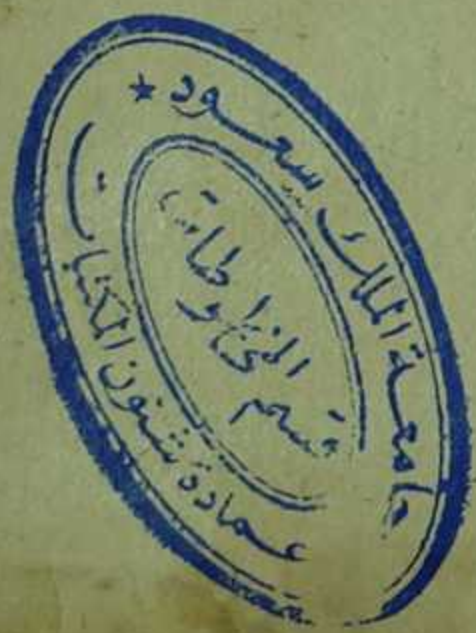 جامعة الملك سعود ★
قسم المخطوطات
عمادة شئون المكتبات